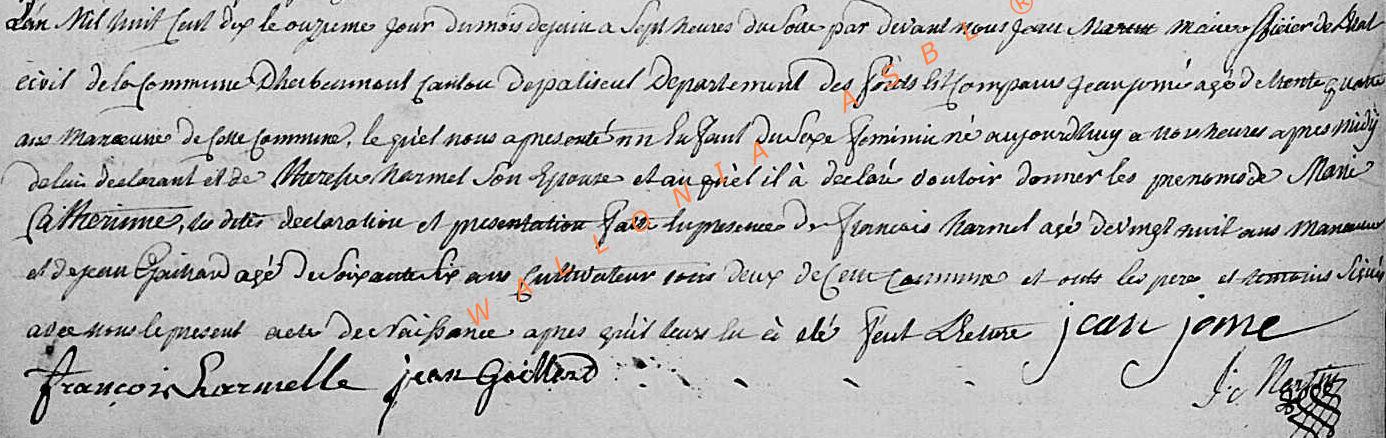 L'an Mil huit Cent dix le onzieme jour du mois de juin a Sept heures du Soire par devant nous Jean Martin Maire officier de L'Etat
civil de la Commune D'herbeumont Canton de paliseul Departement des forêts Est Comparus Jean jomé agé de trente quatre
ans Manoeuvre de Cette Commune, le quel nous a presenté un Enfant du Sexe feminin né aujourdhuy a trois heures apres midÿ
de luis declarant et de Therese harmel Son Epouse et au quel il à declaré vouloir donner les prenoms de Marie
Catherinne, les dites declaration et presentation fait En presence de francois harmel agé de vingt huit ans Manoeuvre
et de jean Gaillard agé de Soixante Six ans Cultivateur tous deux de Cette Commune et onts les pere et temoins Signés
avec nous le present acte de Naissance apres qu'il leurs En à eté feut Lecture jean jome
françois harmelle jean Gaillard J: Martin
WALLONIA ASBL ®